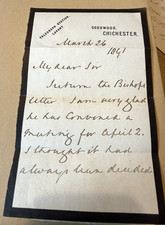 TELEGRAPH STATION
LAVANT.
GOODWOOD,
CHICHESTER.
March 26
1891
My dear Sir
I return the Bishops
letter I am very glad
he has convened a
meeting for April 2.
I thought it had
always been decided